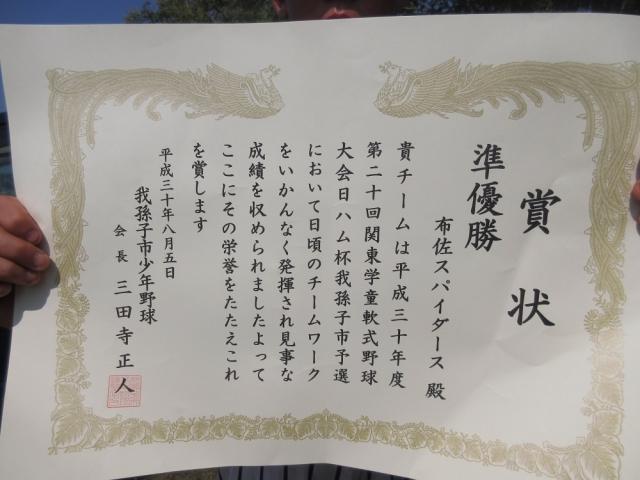 賞状
準優勝
布佐スパイダース 殿
貴チームは平成三十年度
第二十回関東学童軟式野球
大会日ハム杯我孫子市予選
において日頃のチームワーク
をいかんなく発揮され見事な
成績を収められましたよって
ここにその栄誉をたたえこれ
を賞します
平成三十年八月五日
我孫子市少年野球
会長 三田寺正人